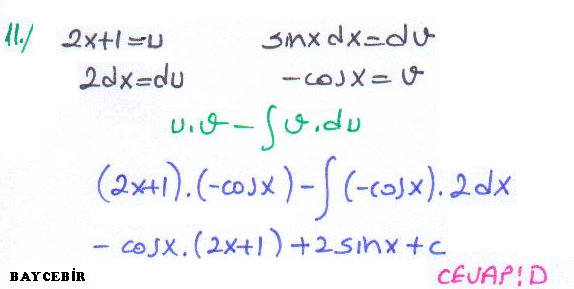 11./ 2x+1=u sinx dx=dv
2dx=du -cosx=v
u.v-∫v.du
(2x+1).(-cosx)-∫(-cosx).2dx
- cosx.(2x+1)+2sinx+c
BAYCEBİR CEVAP!D